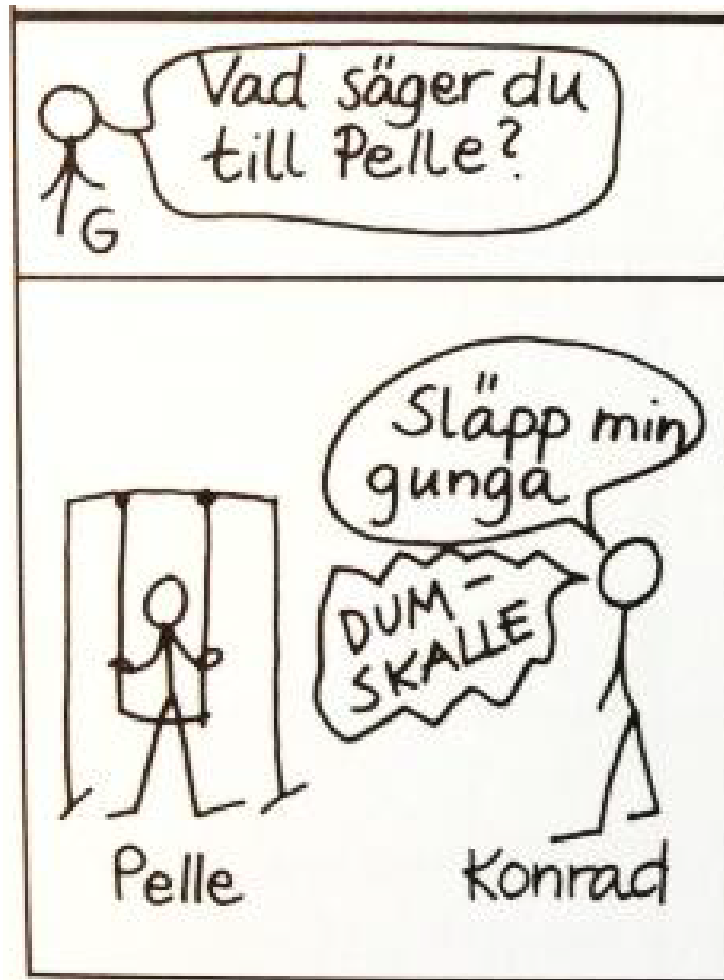 Vad säger du
till Pelle?
G
Släpp min
gunga
DUM-
SKALLE
Pelle
Konrad